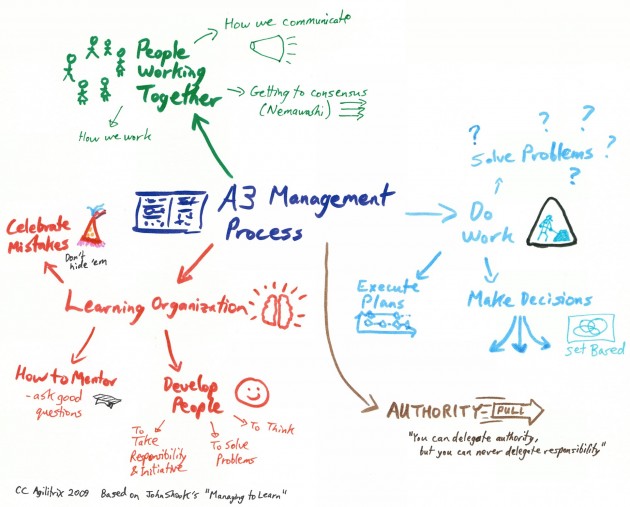 How we communicate
People
Working
Together
Getting to consensus
(Nemawashi)
How we work
? ? ?
Solve Problems ?
?
A3 Management
Process
Do
Work
Celebrate
Mistakes
Don't
hide 'em
Learning Organization
Execute
Plans
Make Decisions
Set Based
How to Mentor
- ask good
questions
Develop
People
To
Take
Responsibility
& Initiative
To Solve
Problems
To Think
AUTHORITY PULL
"You can delegate authority,
but you can never delegate responsibility"
CC Agilitrix 2009 Based on John Shook's "Managing to Learn"